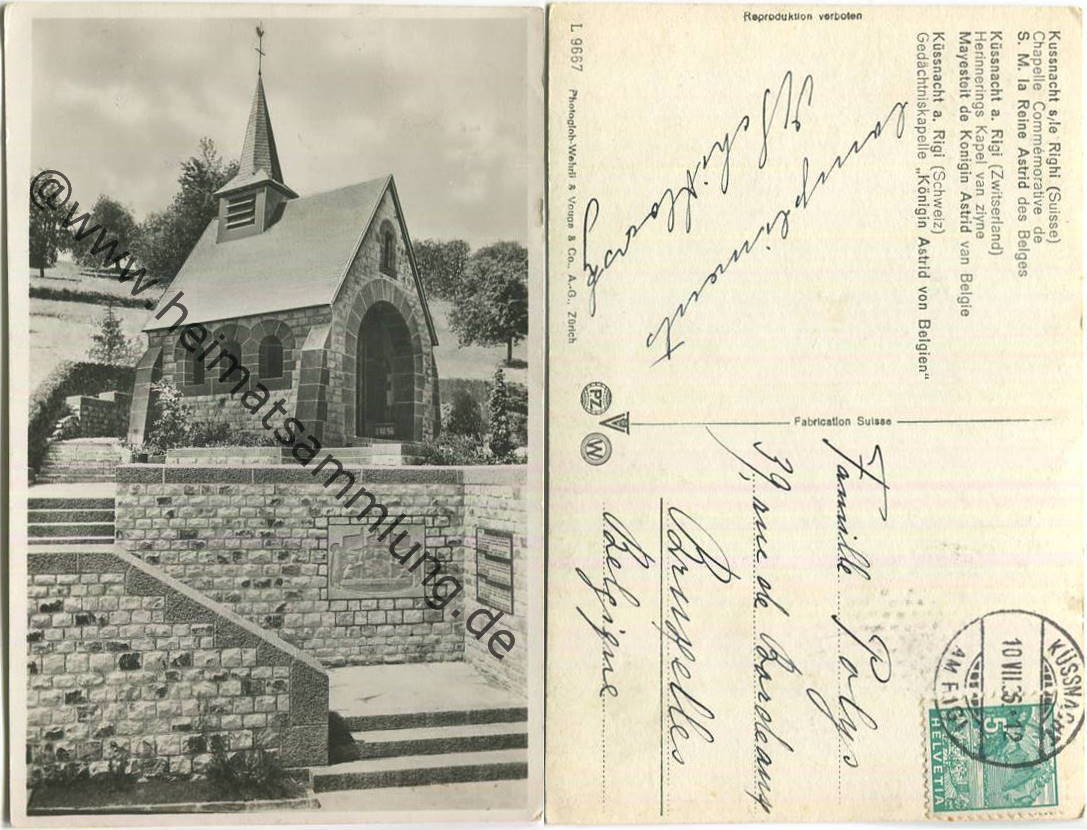 @www.heimatsammlung.de
Reproduktion verboten
Kussnacht s/le Righi (Suisse)
Chapelle Commémorative de
S. M. la Reine Astrid des Belges
Küssnacht a. Rigi (Zwitserland)
Herinnerings Kapel van ziyne
Mayestoit de Konigin Astrid van Belgie
Küssnacht a. Rigi (Schweiz)
Gedächtniskapelle „Königin Astrid von Belgien"
compliments
L 9667 Photoglob-Wehrli & Vouga & Co., A.-G., Zürich
PZ
W
Fabrication Suisse
Famille Polus
39, rue de Bordeaux
Bruxelles
Belgique
KÜSSNACHT
10 VII. 36-12
AM RIGI
5
HELVETIA